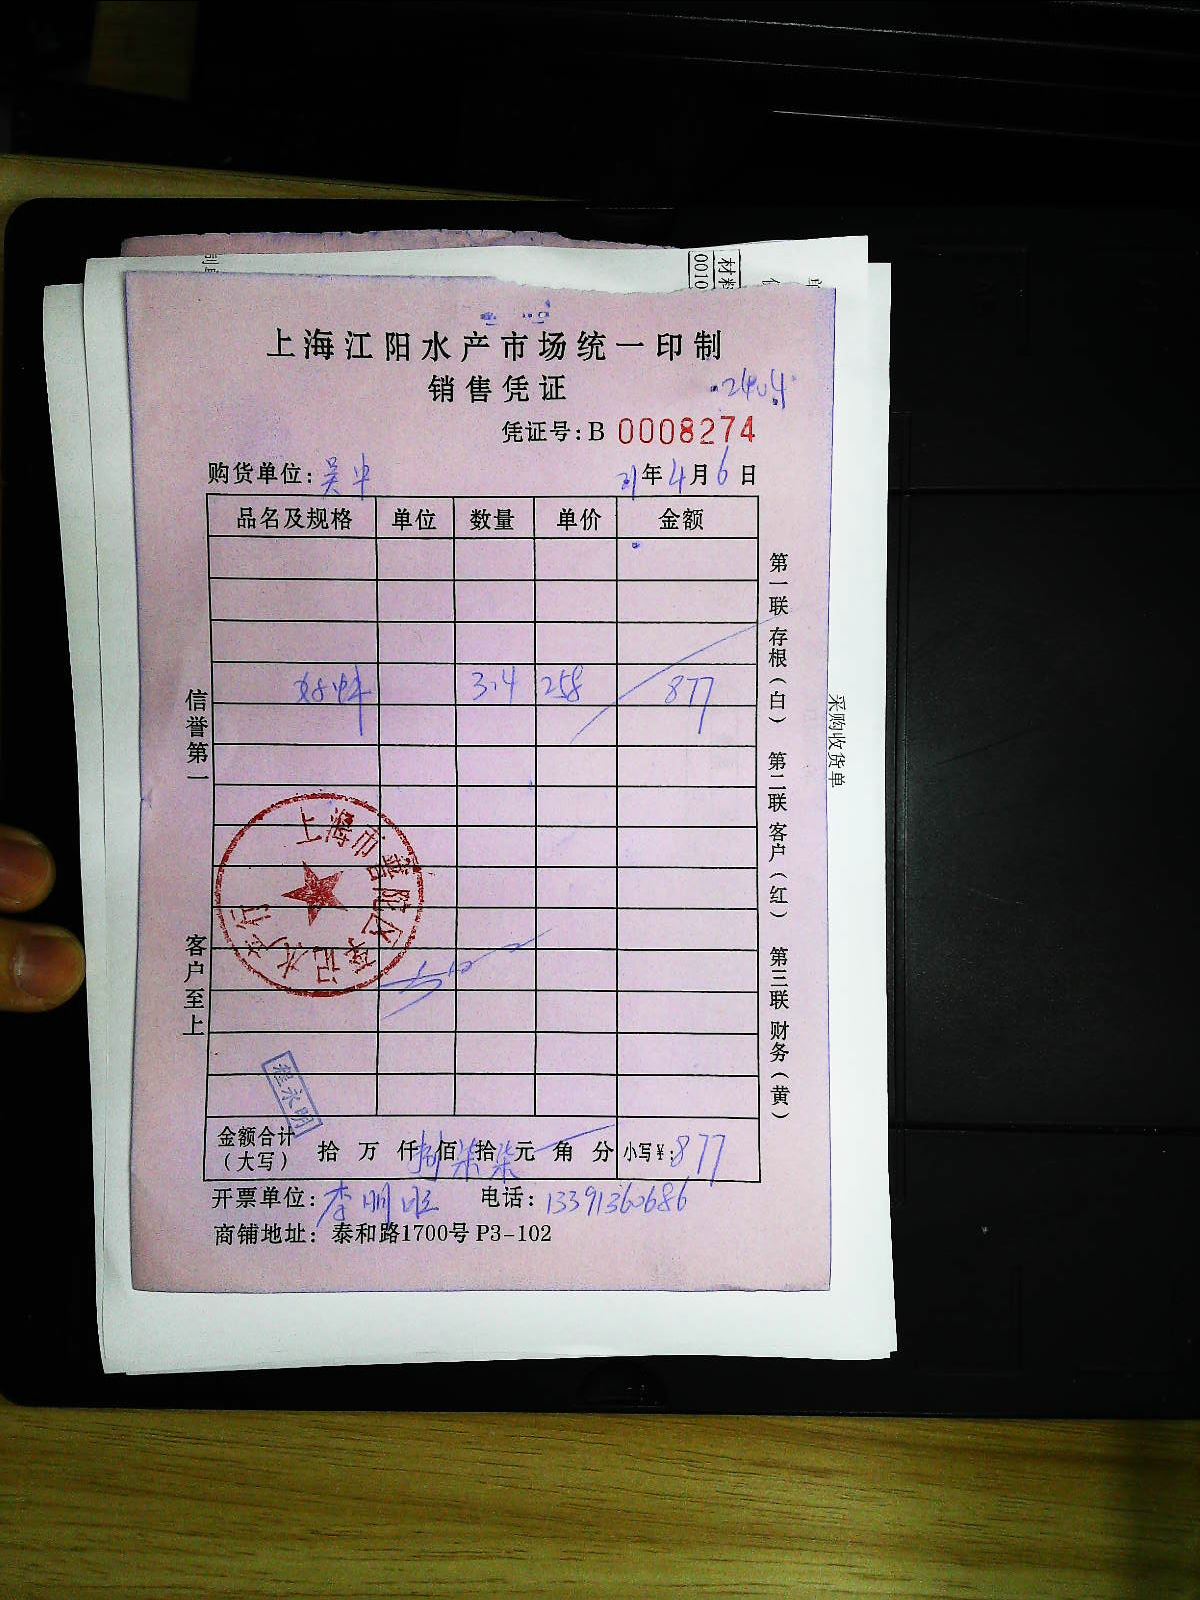 材料
0010
上海江阳水产市场统一印制
销售凭证
2404
凭证号: B 0008274
购货单位: 吴中 21年4月6日
品名及规格 单位 数量 单价 金额
3.4 258 877
信誉第一 客户至上
第一联 存根(白) 第二联 客户(红) 第三联 财务(黄)
采购收货单
上海市普陀区 记水产行
程永明
金额合计(大写) 拾 万 仟 捌佰 柒拾 柒元 角 分 小写¥: 877
开票单位: 李明 电话: 13391360686
商铺地址: 泰和路1700号 P3-102